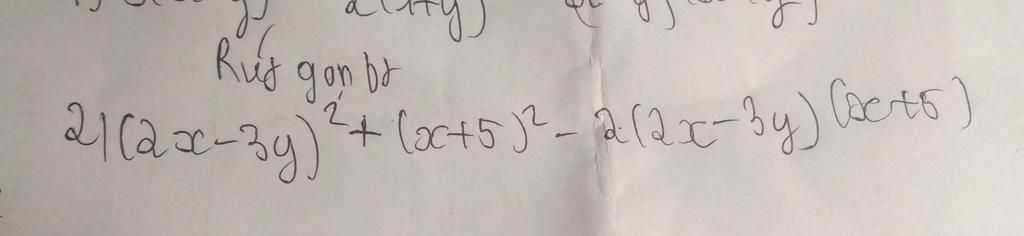 2(x+y)
Rút gọn bt
2)(2x-3y)²+(x+5)²-2(2x-3y)(x+5)